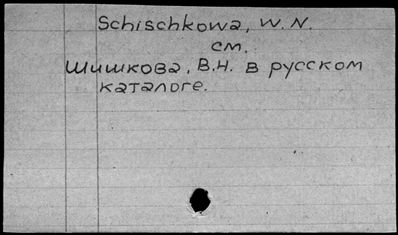 Schischkowa, W. N.
см.
Шишкова, В.Н. в русском
каталоге.